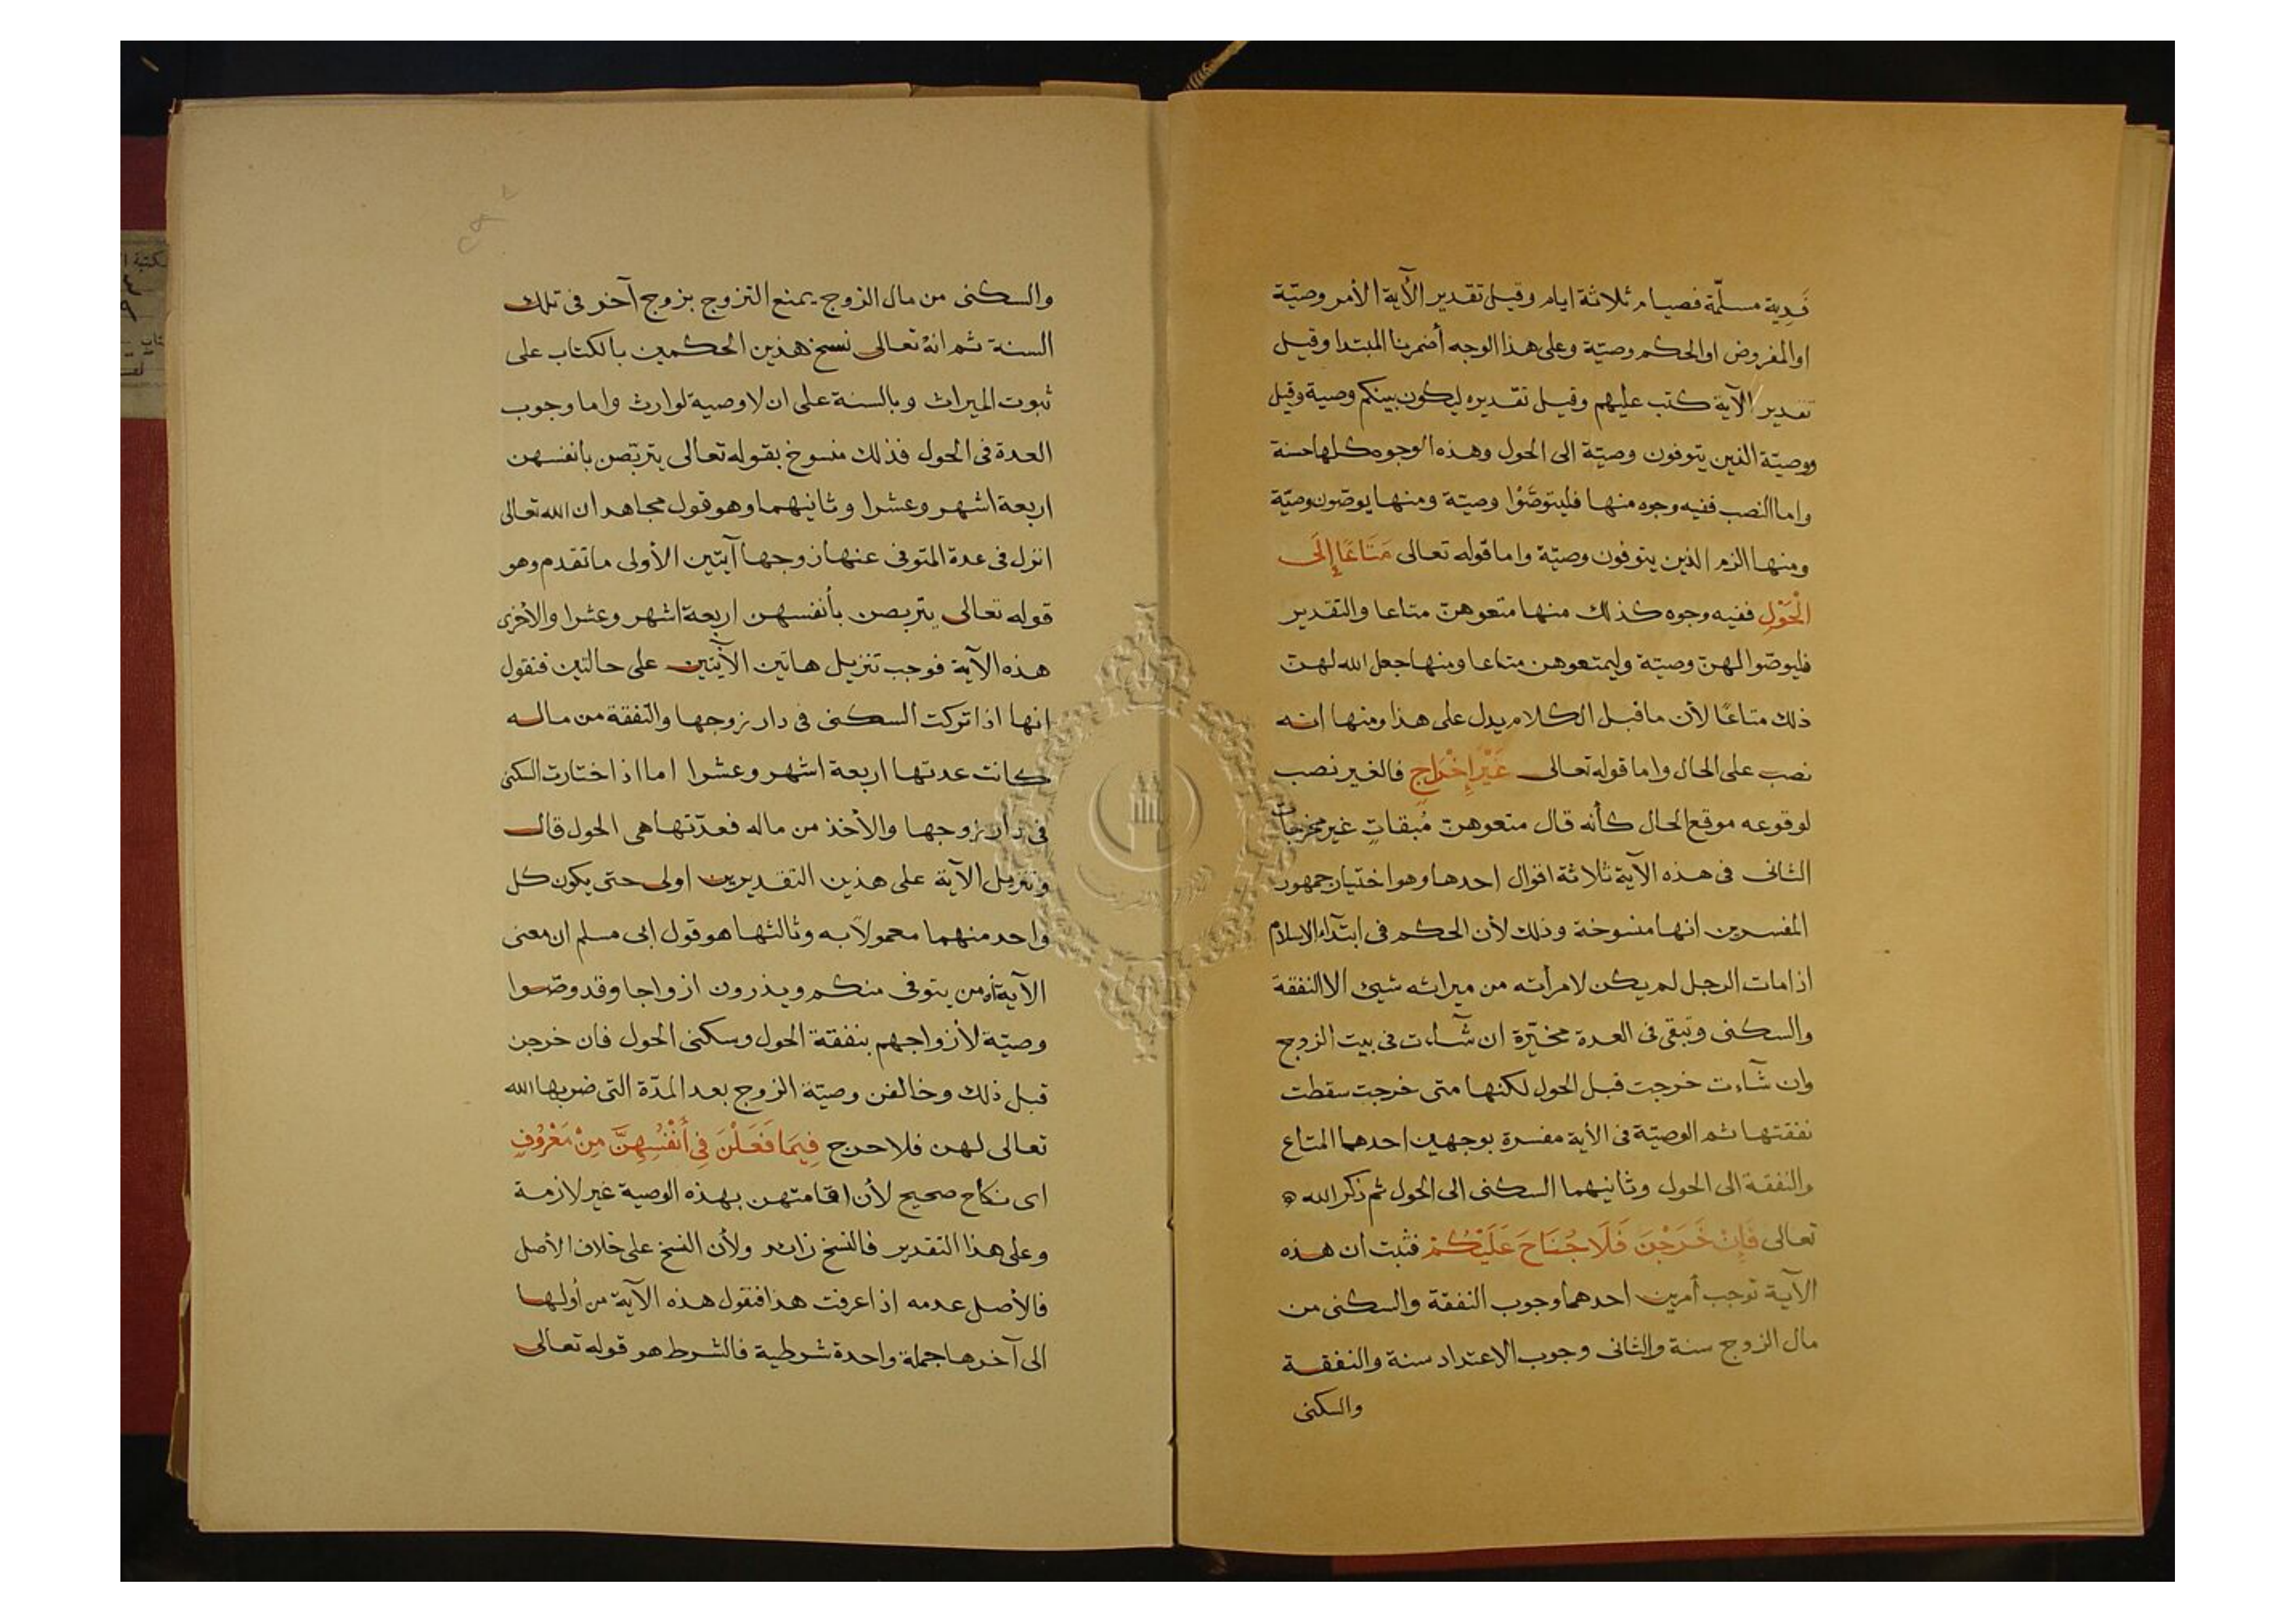 فَدِية مسلّمة فصيام ثلاثة ايام وقيل تقدير الآية الأمر وصيّة
او المفروض او الحكم وصيّة وعلى هذا الوجه أضمرنا المبتدا وقيل
تقدير الآية كتب عليهم وقيل تقديره ليكون بينكم وصية وقيل
ووصيّة الذين يتوفون وصيّة الى الحول وهذه الوجوه كلها حسنة
واما النصب ففيه وجوه منها فليتوصَّوْا وصيّة ومنها يوصّون وصيّة
ومنها الزم الذين يتوفون وصيّة واما قوله تعالى مَتَاعًا إِلَى
الْحَوْلِ ففيه وجوه كذلك منها متعوهنّ متاعا والتقدير
فليوصّوا لهنّ وصيّة وليمتعوهن متاعا ومنها جعل الله لهنّ
ذلك متاعًا لأن ما قبل الكلام يدل على هذا ومنها انه
نصب على الحال واما قوله تعالى غَيْرَ إِخْرَاجٍ فالغير نصب
لوقوعه موقع الحال كأنه قال متعوهنّ مُبقاتٍ غير مخرجات
الثانى فى هذه الآية ثلاثة اقوال احدها وهو اختيار جمهور
المفسرين انها منسوخة وذلك لأن الحكم فى ابتداء الاسلام
اذا مات الرجل لم يكن لامرأته من ميراثه شيئ الا النفقة
والسكنى وتبقى فى العدة مخيّرة ان شآءت فى بيت الزوج
وان شآءت خرجت قبل الحول لكنها متى خرجت سقطت
نفقتها ثم الوصيّة فى الأية مفسرة بوجهين احدهما المتاع
والنفقة الى الحول وثانيهما السكنى الى الحول ثم ذكر الله
تعالى فَإِنْ خَرَجْنَ فَلَا جُنَاحَ عَلَيْكُمْ فثبت ان هذه
الآية توجب أمرين احدهما وجوب النفقة والسكنى من
مال الزوج سنة والثانى وجوب الاعتداد سنة والنفقة
والسكنى
والسكنى من مال الزوج يمنع التزوج بزوج آخر فى تلك
السنة ثم انه تعالى نسخ هذين الحكمين بالكتاب على
ثبوت الميراث وبالسنة على ان لا وصية لوارث واما وجوب
العدة فى الحول فذلك منسوخ بقوله تعالى يتربّصن بانفسهن
اربعة اشهر وعشرا وثانيهما وهو قول مجاهد ان الله تعالى
انزل فى عدة المتوفى عنها زوجها آيتين الأولى ما تقدم وهو
قوله تعالى يتربصن بأنفسهن اربعة اشهر وعشرا والأخرى
هذه الآية فوجب تنزيل هاتين الآيتين على حالتين فنقول
انها اذا تركت السكنى فى دار زوجها والنفقة من ماله
كانت عدتها اربعة اشهر وعشرا اما اذا اختارت السكنى
فى دار زوجها والأخذ من ماله فعدّتها هى الحول قال
وتنزيل الآية على هذين التقديرين اولى حتى يكون كل
واحد منهما معمولا به وثالثها هو قول ابى مسلم ان معنى
الآية ان من يتوفى منكم ويذرون ازواجا وقد وصّوا
وصيّة لأزواجهم بنفقة الحول وسكنى الحول فان خرجن
قبل ذلك وخالفن وصيّة الزوج بعد المدّة التى ضربها الله
تعالى لهن فلا حرج فِيمَا فَعَلْنَ فِي أَنْفُسِهِنَّ مِنْ مَعْرُوفٍ
اى نكاح صحيح لأن اقامتهن بهذه الوصية غير لازمة
وعلى هذا التقدير فالنسخ زائد ولأن النسخ على خلاف الأصل
فالأصل عدمه اذا عرفت هذا فنقول هذه الآية من أولها
الى آخرها جملة واحدة شرطية فالشرط هو قوله تعالى